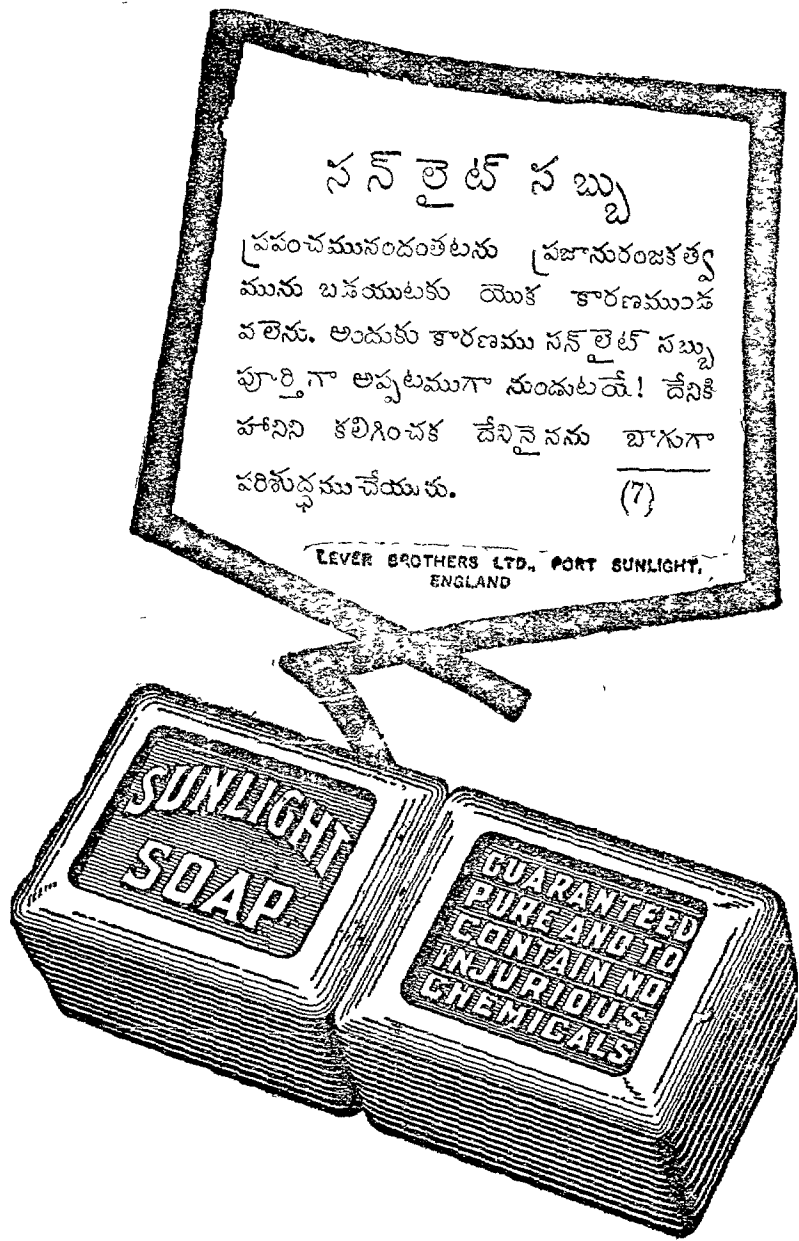 సన్ లైట్ సబ్బు
ప్రపంచమునందంతటను ప్రజానురంజకత్వ
మును బడయుటకు యొక కారణముండ
వలెను. అందుకు కారణము సన్ లైట్ సబ్బు
పూర్తిగా అప్పటముగా నుండుటయే! దేనికి
హానిని కలిగించక దేనినైనను బాగుగా
పరిశుద్ధము చేయును.
(7)
LEVER BROTHERS LTD., PORT SUNLIGHT,
ENGLAND
SUNLIGHT
SOAP
GUARANTEED
PURE AND TO
CONTAIN NO
INJURIOUS
CHEMICALS